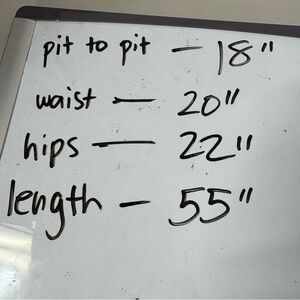 pit to pit — 18"
waist — 20"
hips — 22"
length — 55"